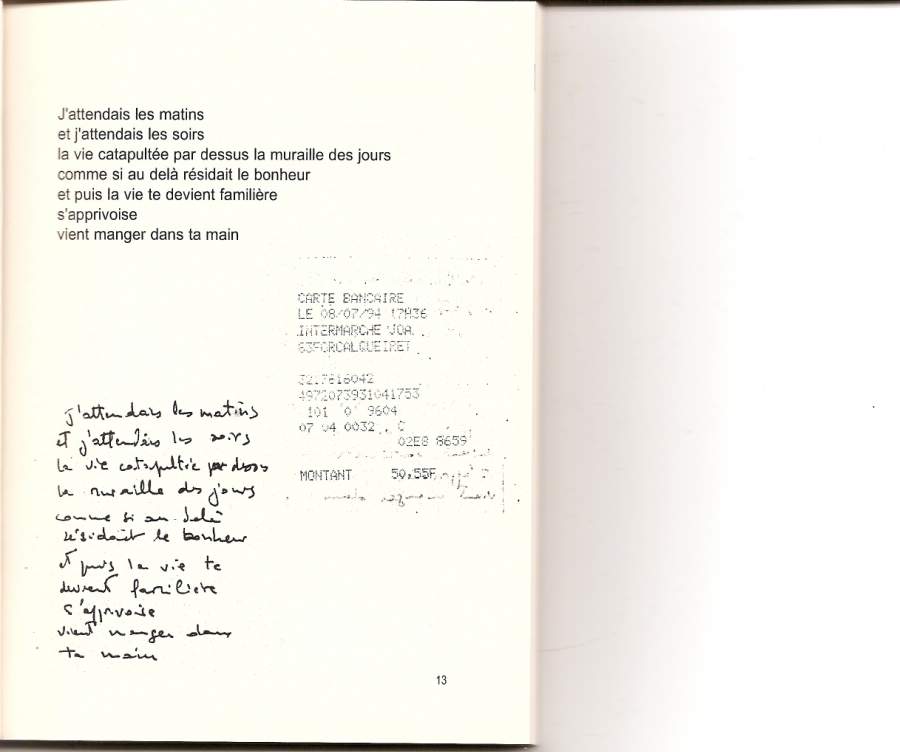 J'attendais les matins
et j'attendais les soirs
la vie catapultée par dessus la muraille des jours
comme si au delà résidait le bonheur
et puis la vie te devient familière
s'apprivoise
vient manger dans ta main
CARTE BANCAIRE
LE 08/07/94 17H36
INTERMARCHE
83FORCALQUEIRET
4972073931041753
101 0 9604
07 04 0032 C
02E8 8659
MONTANT 50,55F
j'attendais les matins
et j'attendais les soirs
la vie catapultée par dessus
la muraille des jours
comme si au delà
résidait le bonheur
et puis la vie te
devient familière
s'apprivoise
vient manger dans
ta main
13